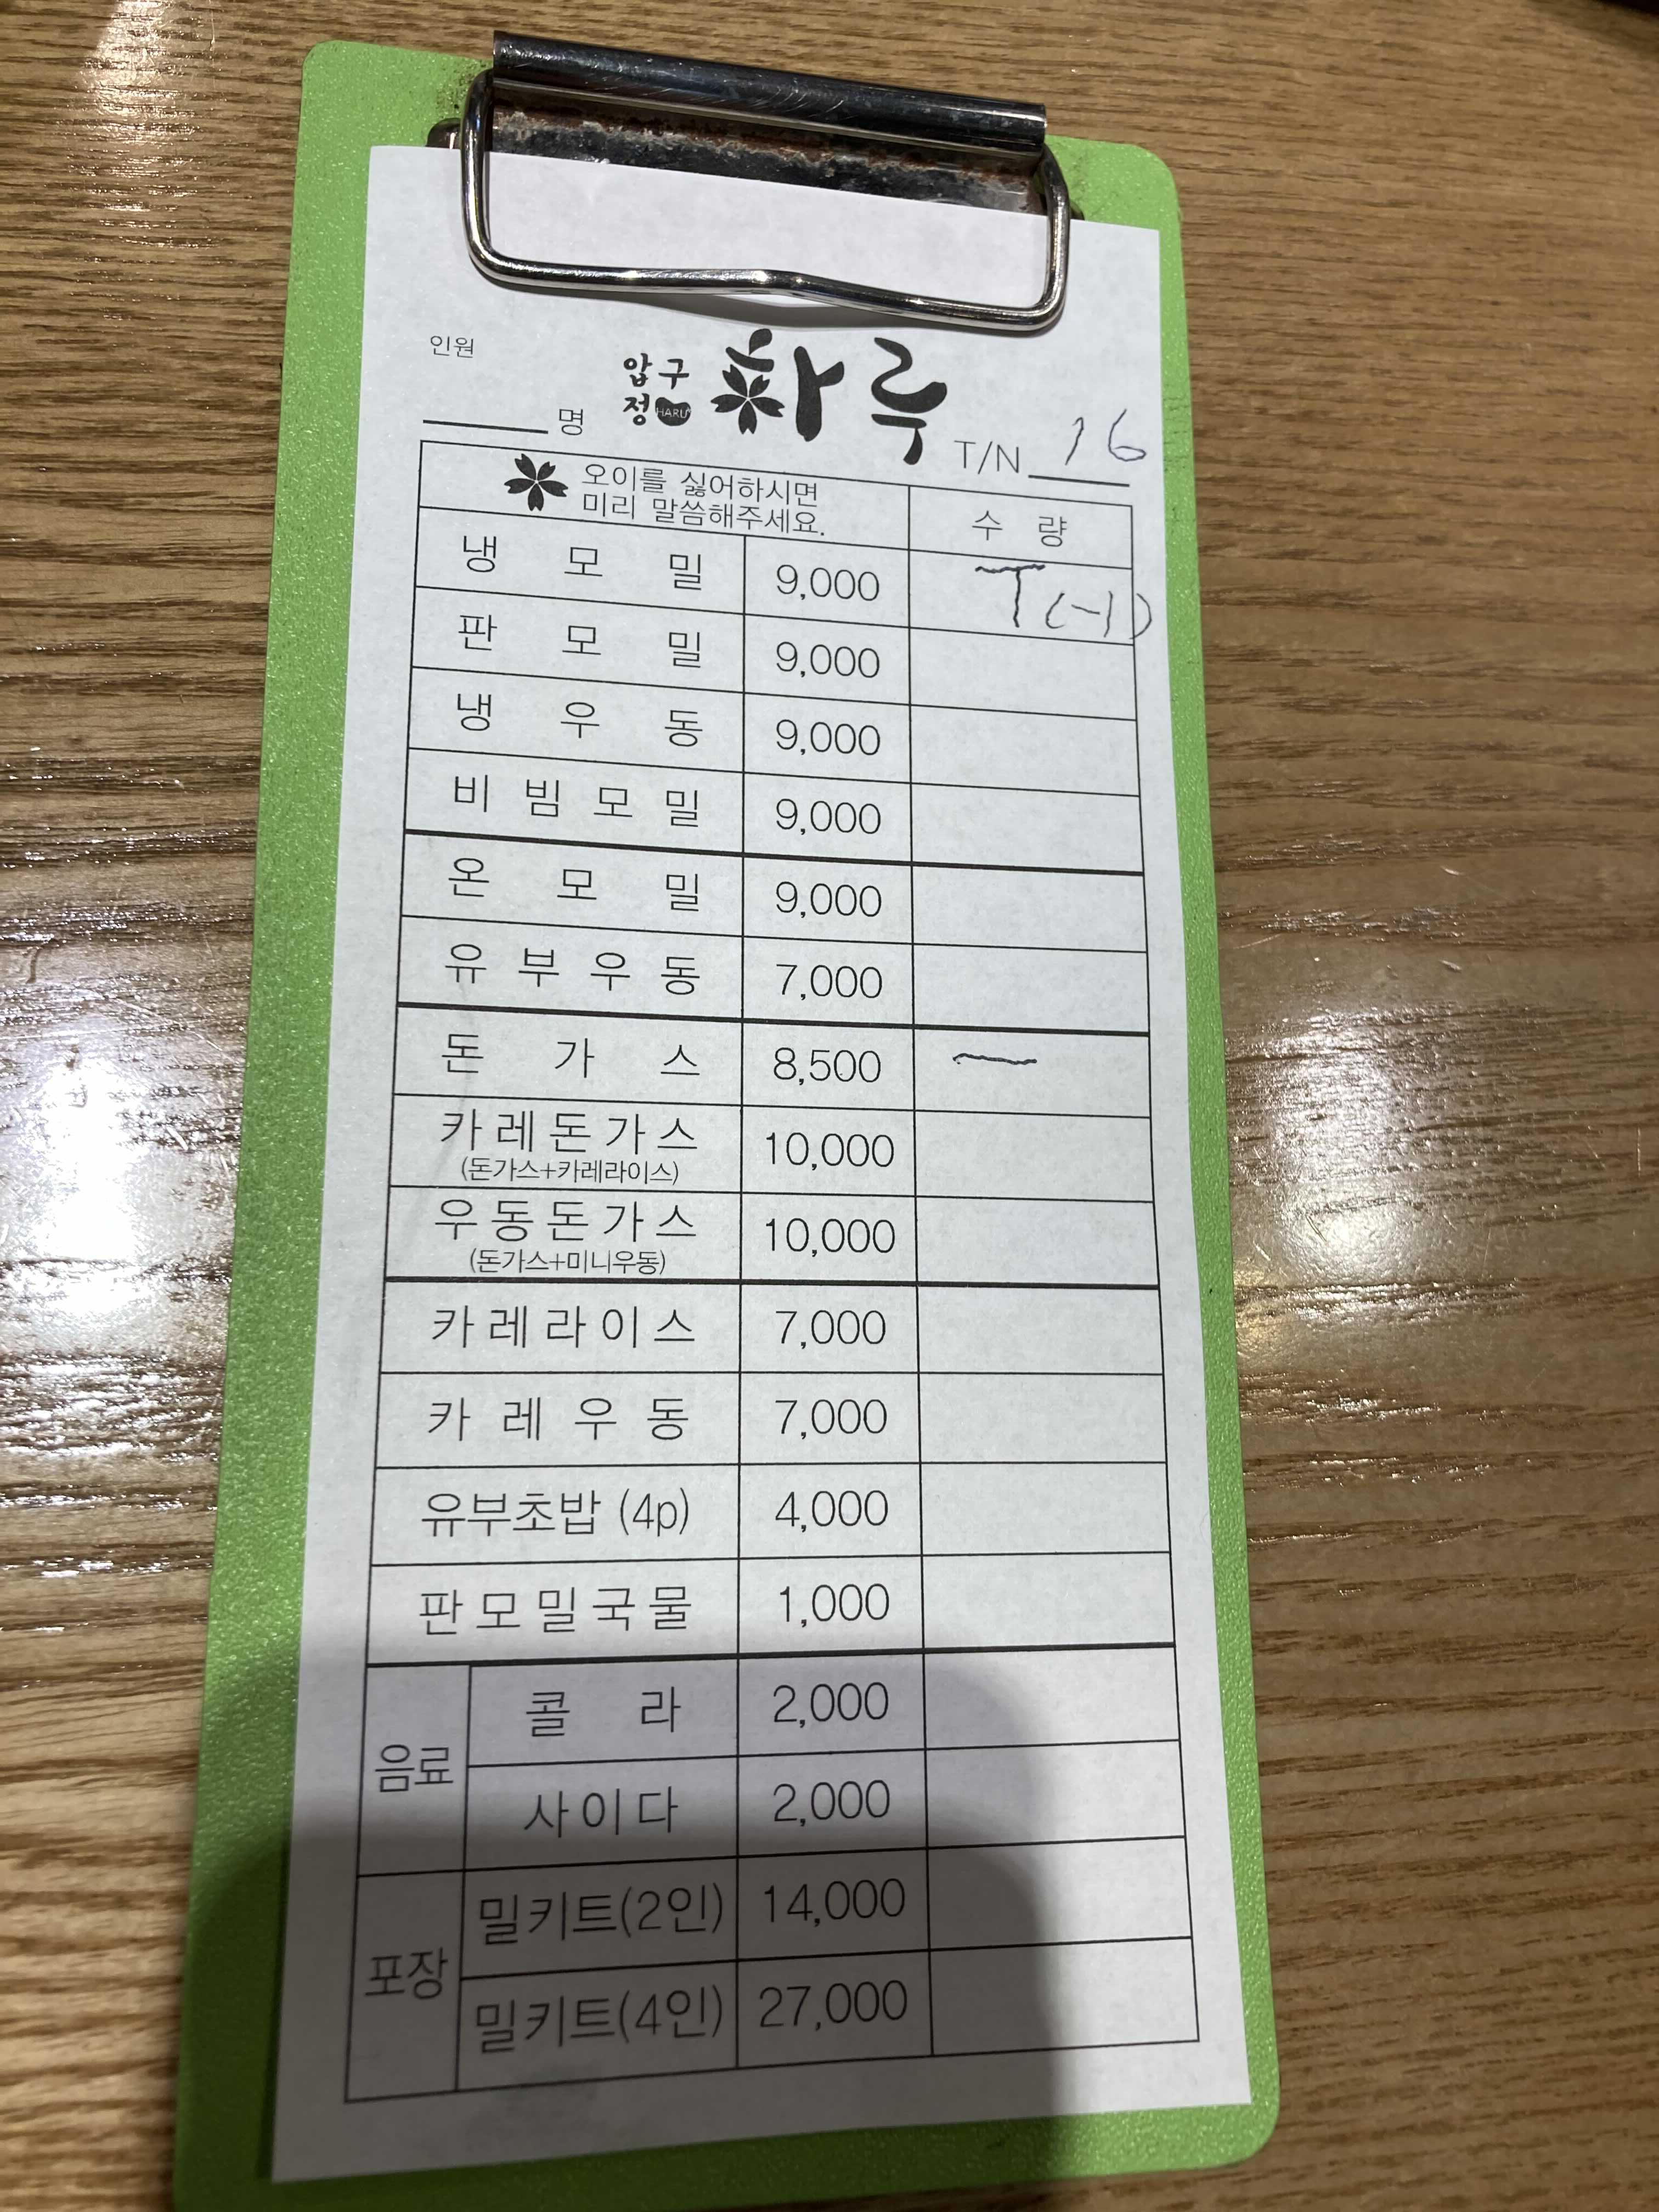 인원
압구
정 HARU 하루
명
T/N 16
오이를 싫어하시면
미리 말씀해주세요.
수 량
냉 모 밀 9,000 T (-1)
판 모 밀 9,000
냉 우 동 9,000
비 빔 모 밀 9,000
온 모 밀 9,000
유 부 우 동 7,000
돈 가 스 8,500 ㅡ
카 레 돈 가 스 10,000
(돈가스+카레라이스)
우 동 돈 가 스 10,000
(돈가스+미니우동)
카 레 라 이 스 7,000
카 레 우 동 7,000
유부초밥 (4p) 4,000
판 모 밀 국 물 1,000
음료
콜 라 2,000
사 이 다 2,000
포장
밀키트(2인) 14,000
밀키트(4인) 27,000